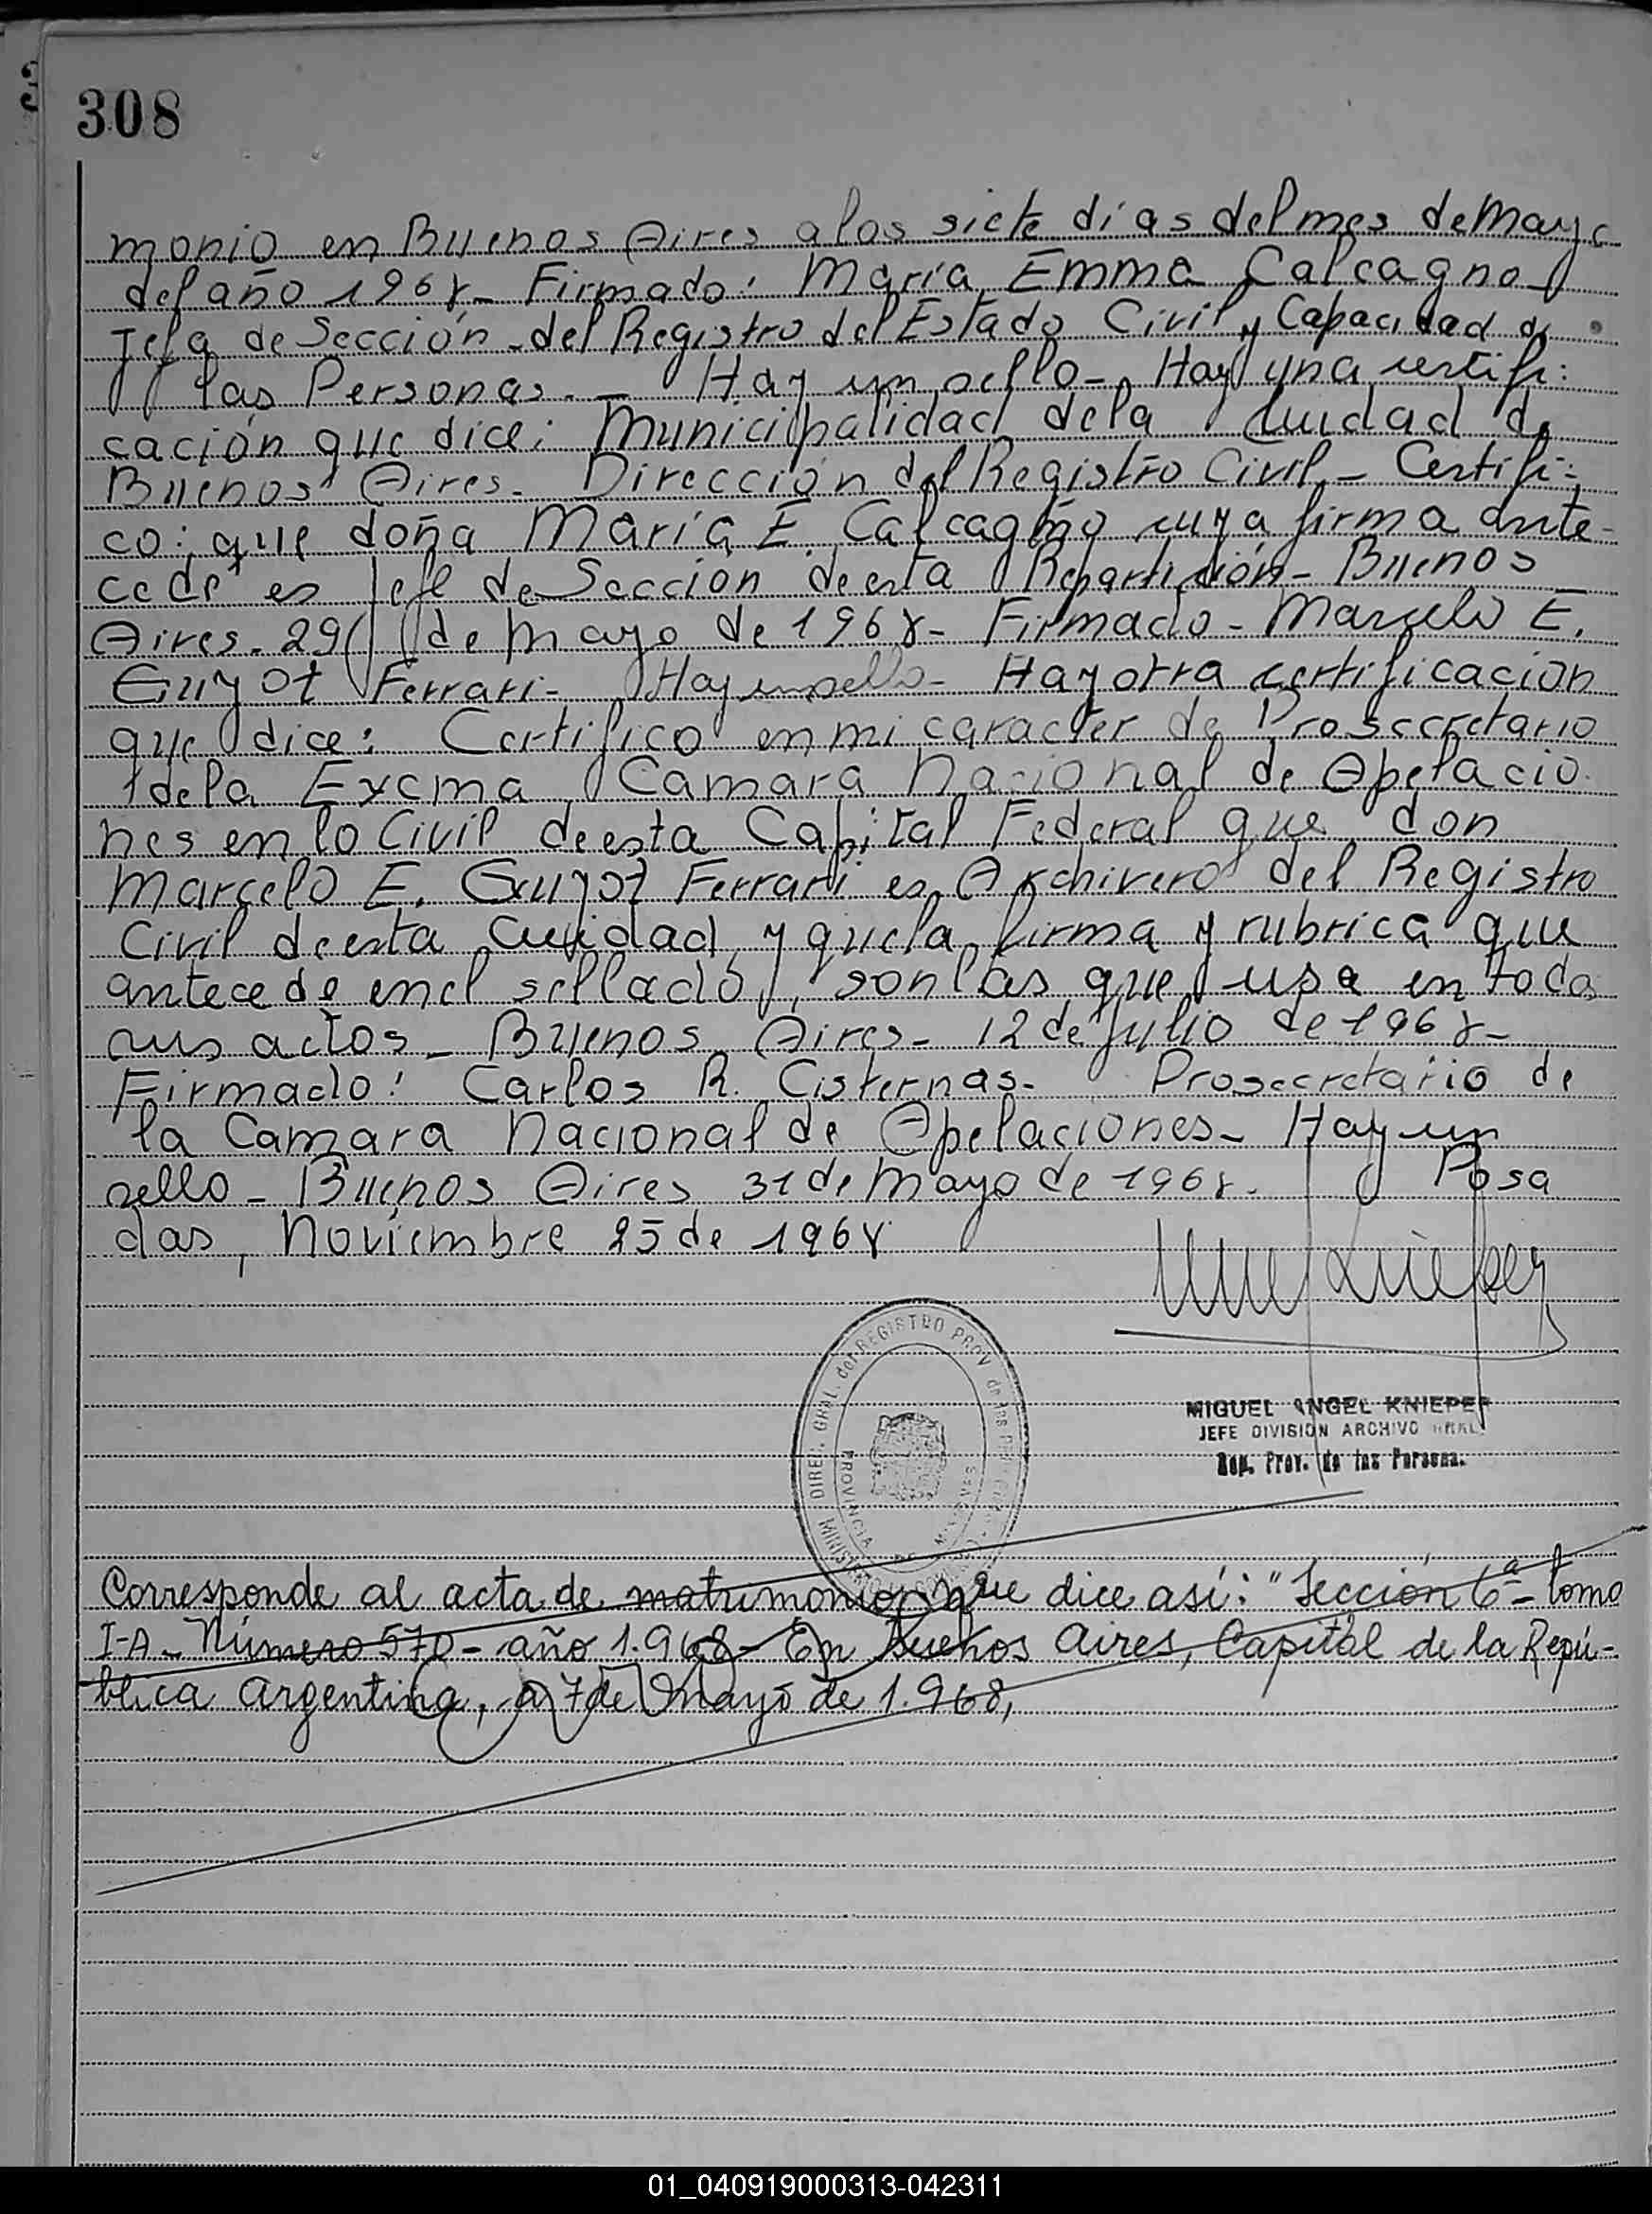 308
monio en Buenos Aires a los siete días del mes de Mayo
del año 1968- Firmado: María Emma Calcagno
Jefa de Sección del Registro del Estado Civil y Capacidad de
las Personas.- Hay un sello- Hay una certifi:
cación que dice: Municipalidad de la Ciudad de
Buenos Aires- Dirección del Registro Civil- Certifi-
co: que doña María E. Calcagno cuya firma ante-
cede es Jefe de Sección de esta Repartición- Buenos
Aires- 29 de Mayo de 1968- Firmado- Marcelo E.
Guyot Ferrari- Hay un sello- Hay otra certificación
que dice: Certifico en mi caracter de Prosecretario
de la Excma Camara Nacional de Apelacio
nes en lo Civil de esta Capital Federal que don
Marcelo E. Guyot Ferrari es Archivero del Registro
Civil de esta Ciudad y que la firma y rubrica que
antecede en el sellado, son las que usa en todos
sus actos- Buenos Aires- 12 de Julio de 1968-
Firmado: Carlos R. Cisternas- Prosecretario de
la Camara Nacional de Apelaciones- Hay un
sello- Buenos Aires 31 de Mayo de 1968. Posa
das, Noviembre 25 de 1968
DIREC. GRAL. del REGISTRO PROV. de las
PROVINCIA DE MISIONES
MIGUEL ANGEL KNIEPER
JEFE DIVISION ARCHIVO GRAL.
Reg. Prov. de las Personas.
Corresponde al acta de matrimonio que dice así: "Sección 6ª- tomo
I-A- Número 570- año 1.968- En Buenos Aires, Capital de la Repú-
blica Argentina, a 7 de Mayo de 1.968,
01_040919000313-042311